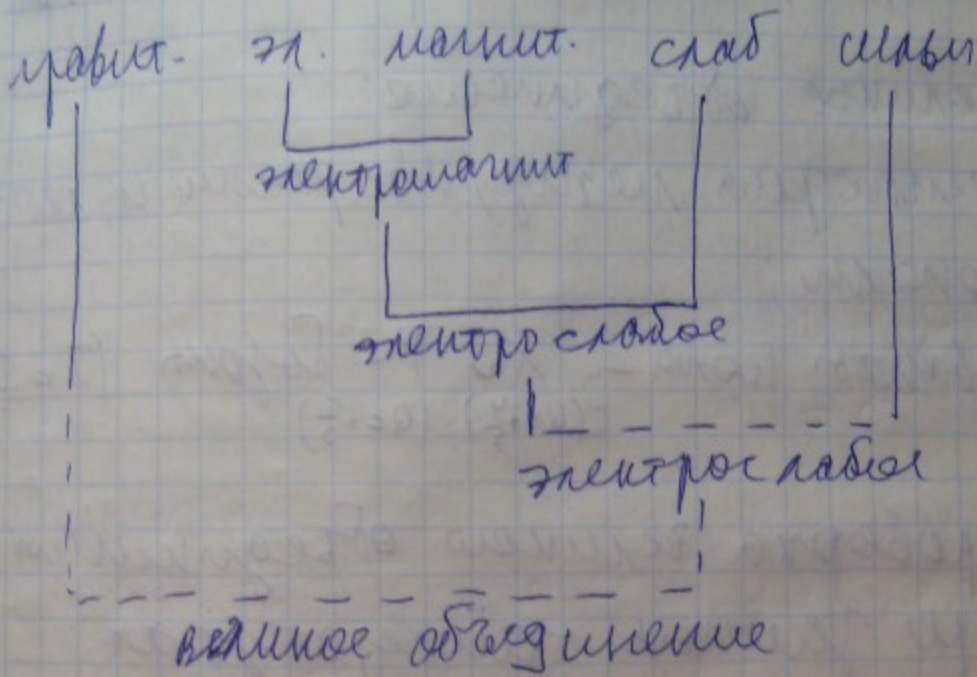 гравит. эл. магнит. слаб сильн
электромагнит
электрослабое
электрослабое
великое объединение